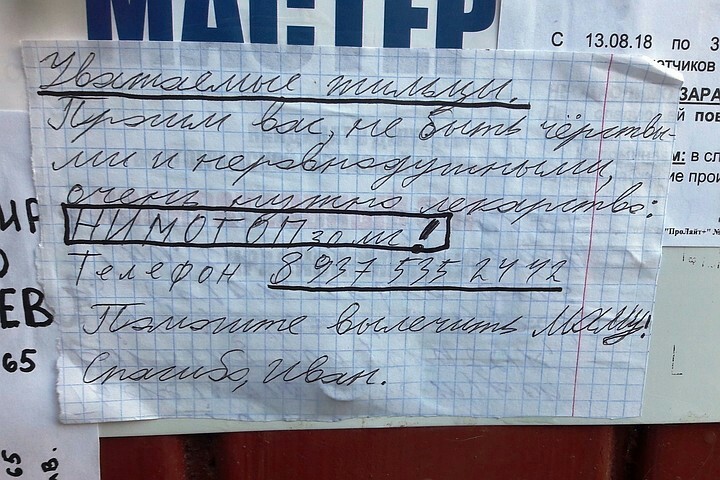 МАСТЕР
С 13.08.18 по 3
тчиков
ЗАРА
й пов
м: в сл
ие прои
"ПроЛайт+" №
Уважаемые жильцы.
Просим вас, не быть чёрствы-
ми и неравнодушными,
очень нужно лекарство:
НИМОТОП 30 мг!
Телефон 8 937 535 24 42
Помогите вылечить маму!
Спасибо, Иван.
ИР
О
ЕВ
65
65